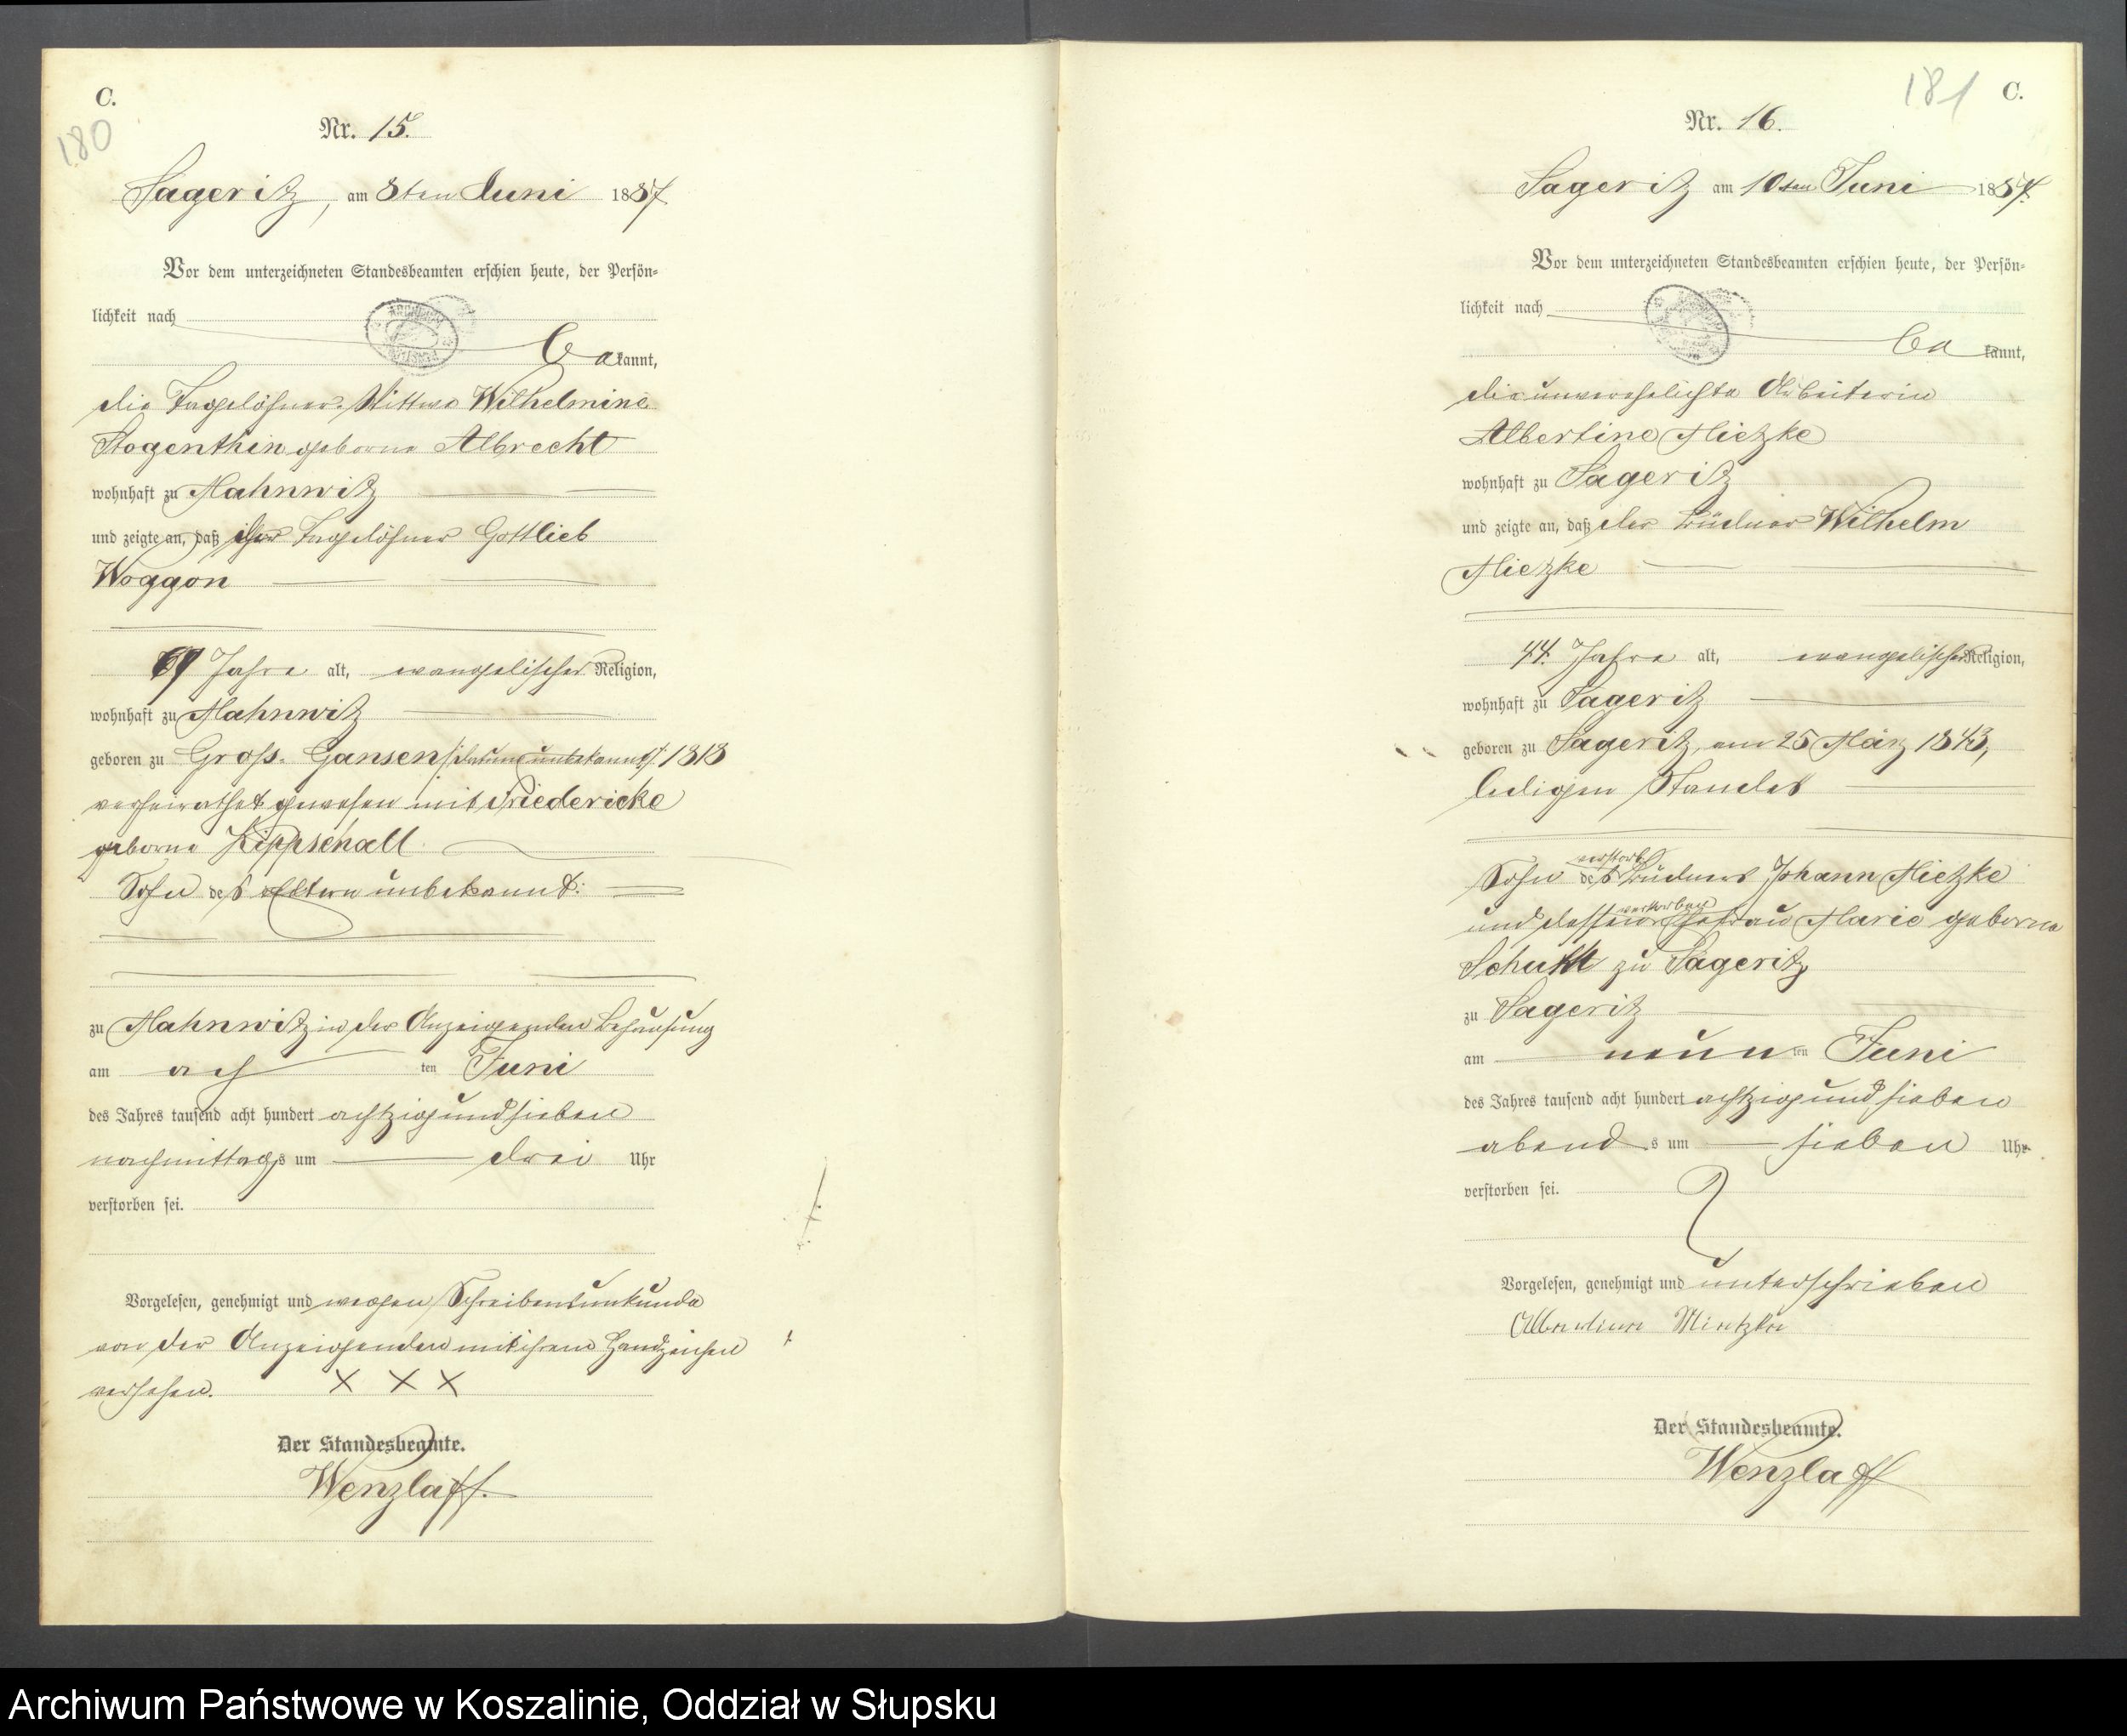 C.
180
Nr. 15.
Sageritz, am 8ten Juni 1887.
Vor dem unterzeichneten Standesbeamten erschien heute, der Persön=
lichkeit nach
be kannt,
die Tagelöhner-Wittwe Wilhelmine
Stogenthin geborne Albrecht
wohnhaft zu Mahnwitz
und zeigte an, daß der Tagelöhner Gottlieb
Woggon
69 Jahre alt, evangelischer Religion,
wohnhaft zu Mahnwitz
geboren zu Groß. Gansen /:datum unbekannt:/ 1818
verheirathet gewesen mit Friedericke
geborne Kippschall
Sohn des Eltern unbekannt:
zu Mahnwitz in der Anzeigenden Behausung
am ach ten Juni
des Jahres tausend acht hundert achtzig und sieben
nachmittags um drei Uhr
verstorben sei.
Vorgelesen, genehmigt und wegen Schreibensunkunde
von der Anzeigenden mit ihrem Handzeichen
versehen. X X X
Der Standesbeamte.
Wenzlaff.
181 C.
Nr. 16.
Sageritz am 10ten Juni 1887.
Vor dem unterzeichneten Standesbeamten erschien heute, der Persön=
lichkeit nach
be kannt,
die unverehelichte Arbeiterin
Albertine Mietzke
wohnhaft zu Sageritz
und zeigte an, daß der Büdner Wilhelm
Mietzke
44. Jahre alt, evangelischer Religion,
wohnhaft zu Sageritz
geboren zu Sageritz, am 25 März 1843,
ledigen Standes
verstorb
Sohn des Büdners Johann Mietzke
verstorben
und dessen Ehefrau Marie geborne
Schutt zu Sageritz
zu Sageritz
am neun ten Juni
des Jahres tausend acht hundert achtzig und sieben
abend s um sieben Uhr
verstorben sei.
Vorgelesen, genehmigt und unterschrieben
Albertine Mietzke
Der Standesbeamte.
Wenzlaff
Archiwum Państwowe w Koszalinie, Oddział w Słupsku